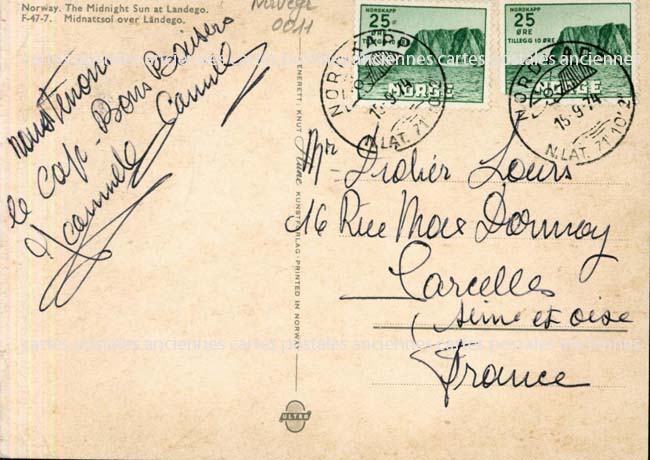 Norway. The Midnight Sun at Landego.
F-47-7. Midnattsol over Låndego.
0011
nous tenons
le cap - Bons Baisers
Camille
ENERETT: KNUT Aune KUNSTFORLAG - PRINTED IN NORWAY
ULTRA
NORDKAPP
25
ØRE
NORGE
NORDKAPP
25
ØRE
TILLEGG 10 ØRE
NORGE
NORDKAPP
15-9-74
N.LAT. 71°10'21"
NORDKAPP
15-9-74
N.LAT. 71°10'21"
Mr Didier Louis
16 Rue Max Dormoy
Sarcelles
Seine et oise
France
cartes postales anciennes cartes postales anciennes cartes postales anciennes